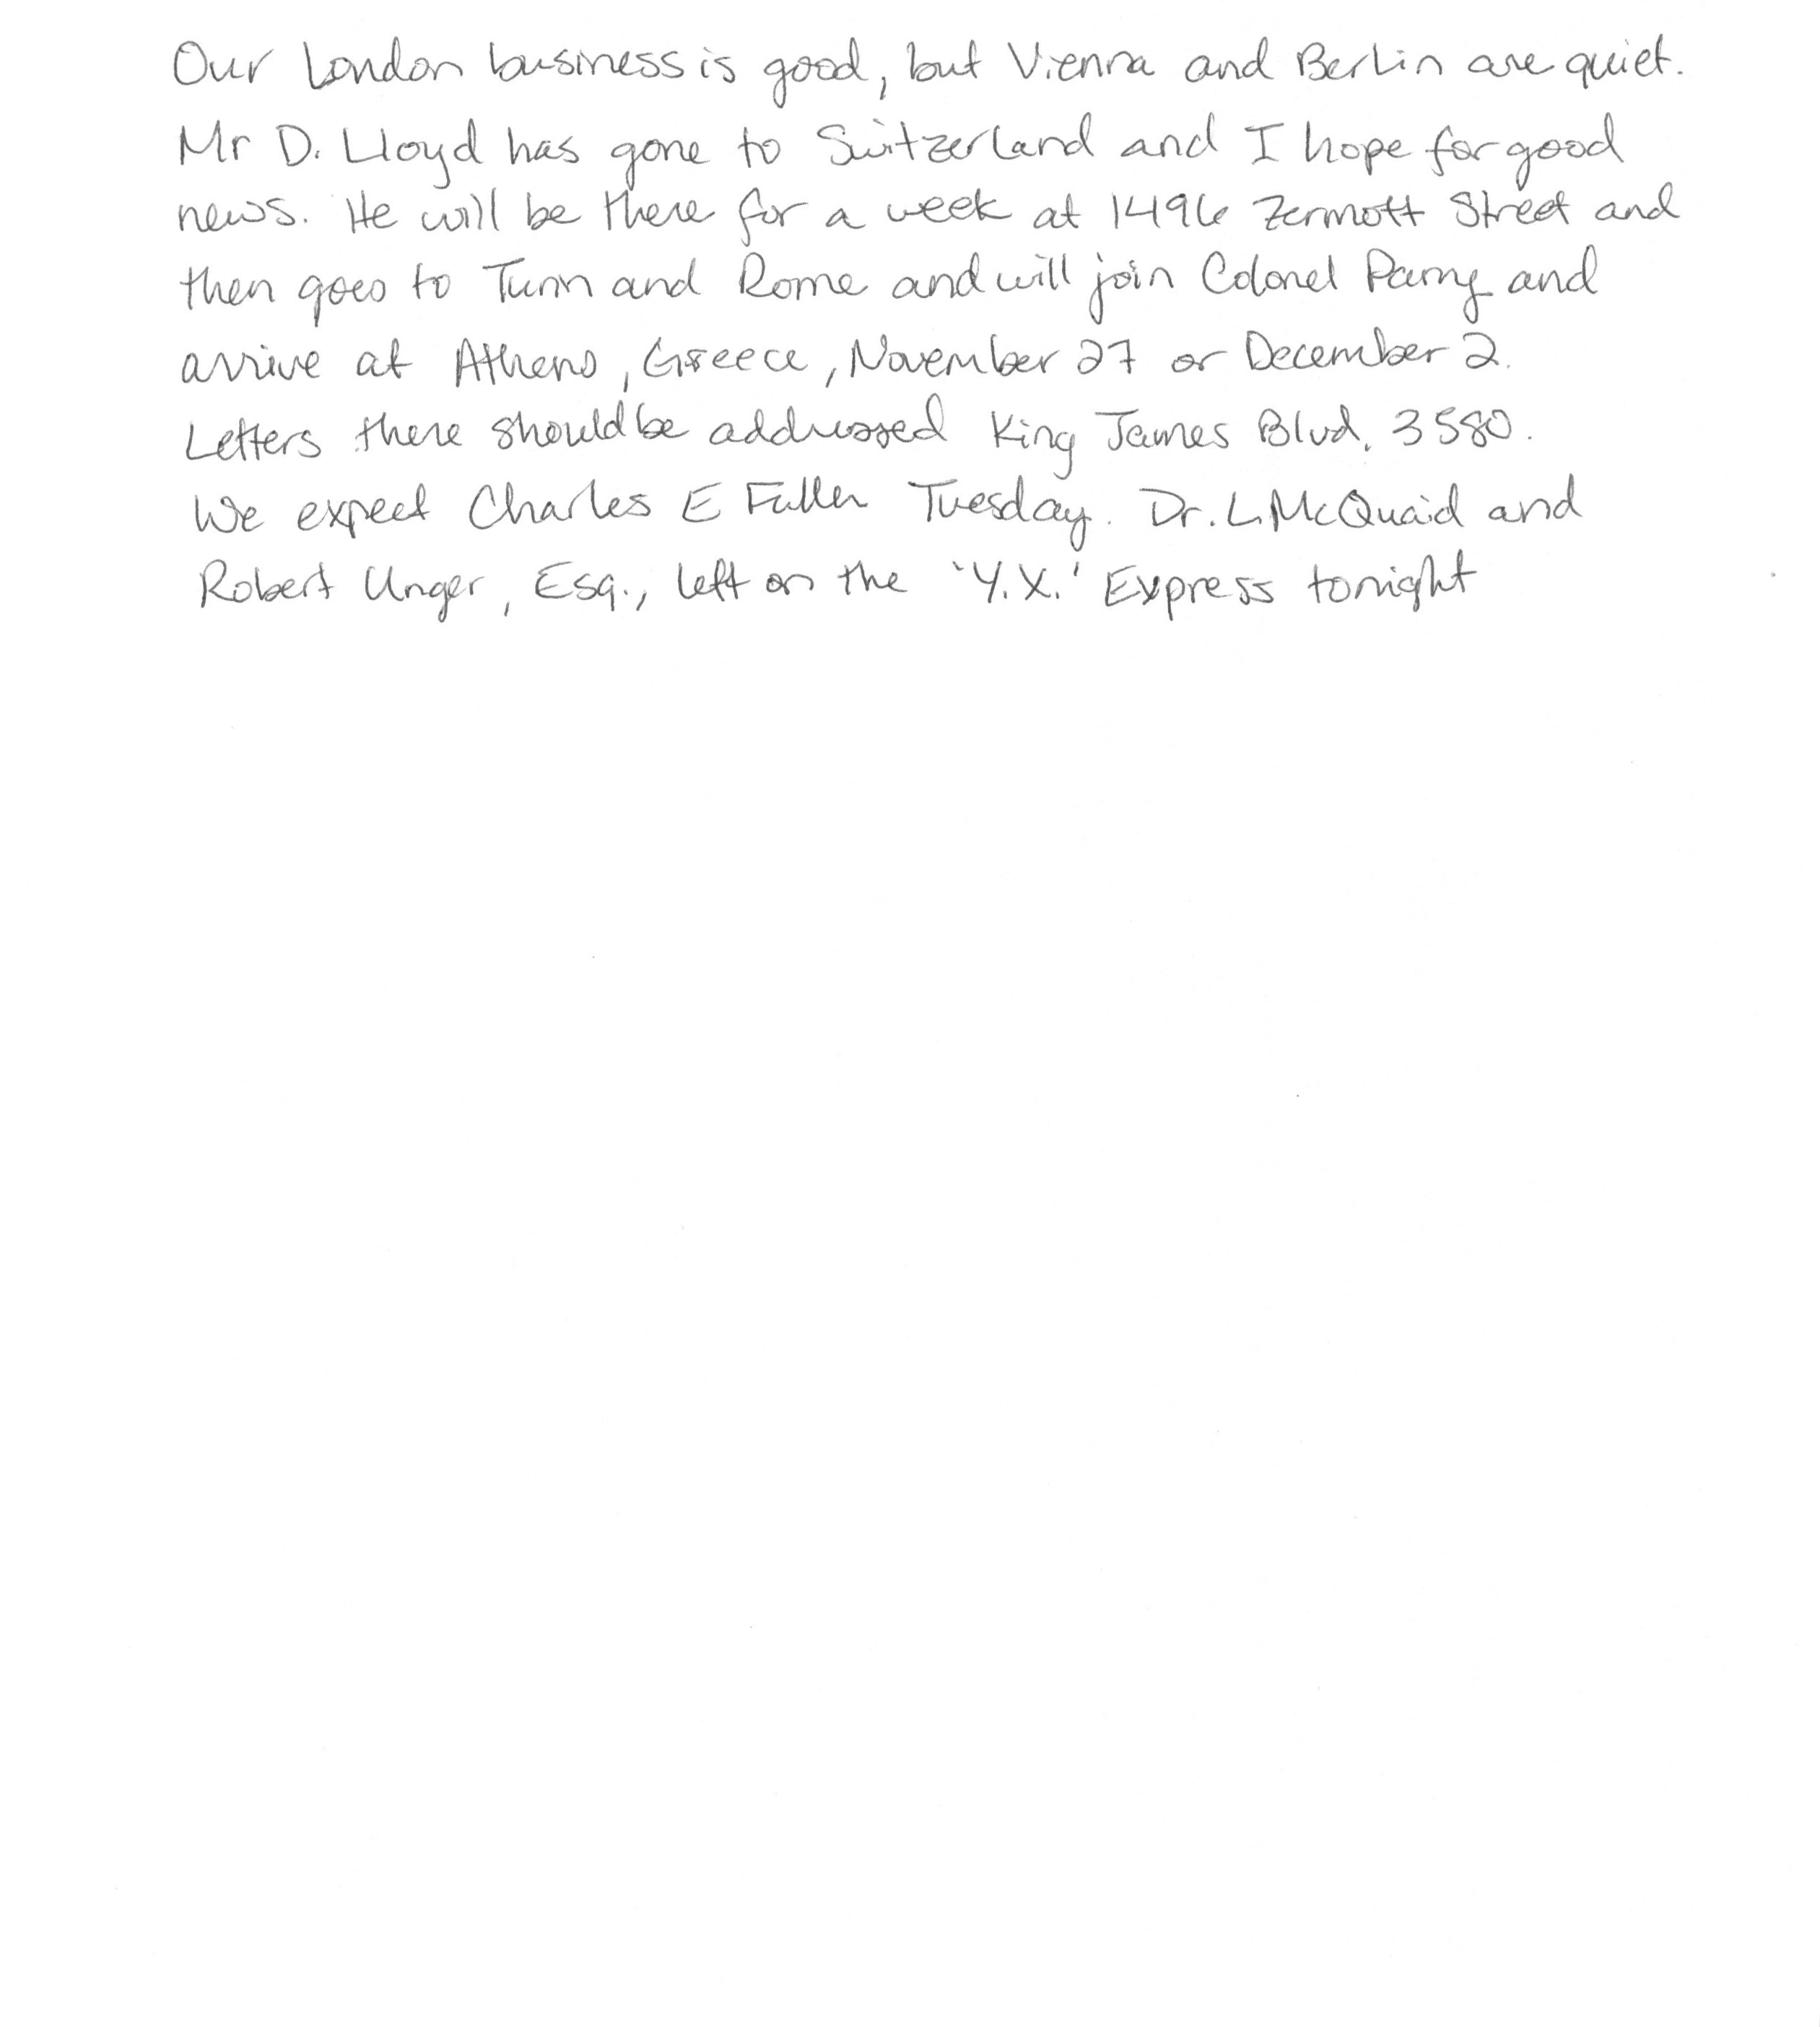 Our London business is good, but Vienna and Berlin are quiet.
Mr D. Lloyd has gone to Switzerland and I hope for good
news. He will be there for a week at 1496 Zermott Street and
then goes to Turin and Rome and will join Colonel Parry and
arrive at Athens, Greece, November 27 or December 2.
Letters there should be addressed King James Blvd. 3580.
We expect Charles E Fuller Tuesday. Dr. L. McQuaid and
Robert Unger, Esq., left on the 'Y.X.' Express tonight